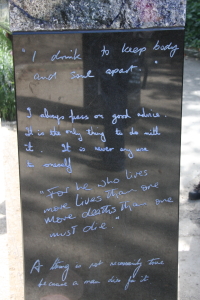 "I drink to keep body
and soul apart."
I always pass on good advice.
It is the only thing to do with
it. It is never any use
to oneself
"For he who lives
more lives than one
More deaths than one
must die."
A thing is not necessarily true
because a man dies for it